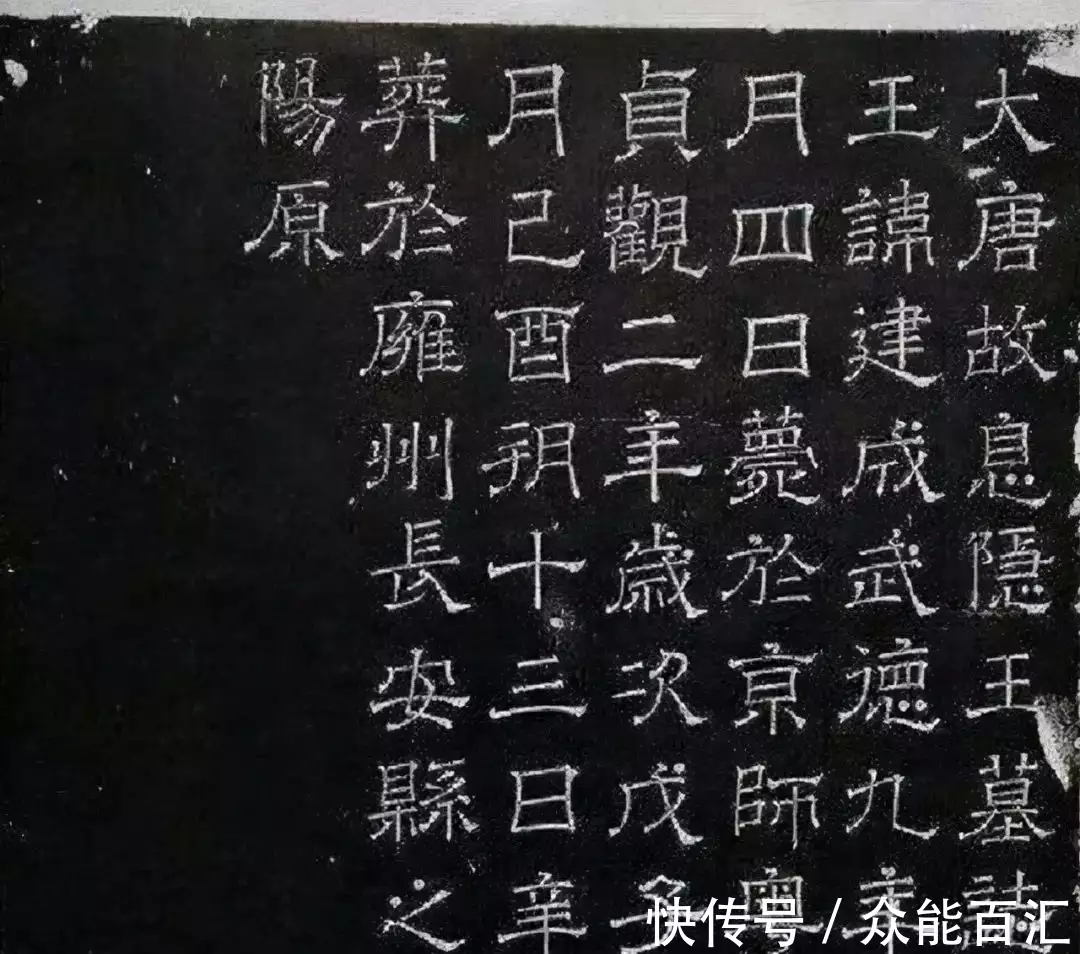 大唐故息隱王墓誌
王諱建成武德九年
月四日薨於京師粵
貞觀二年歲次戊子
月己酉朔十三日辛
葬於雍州長安縣之
陽原
快传号 / 众能百汇